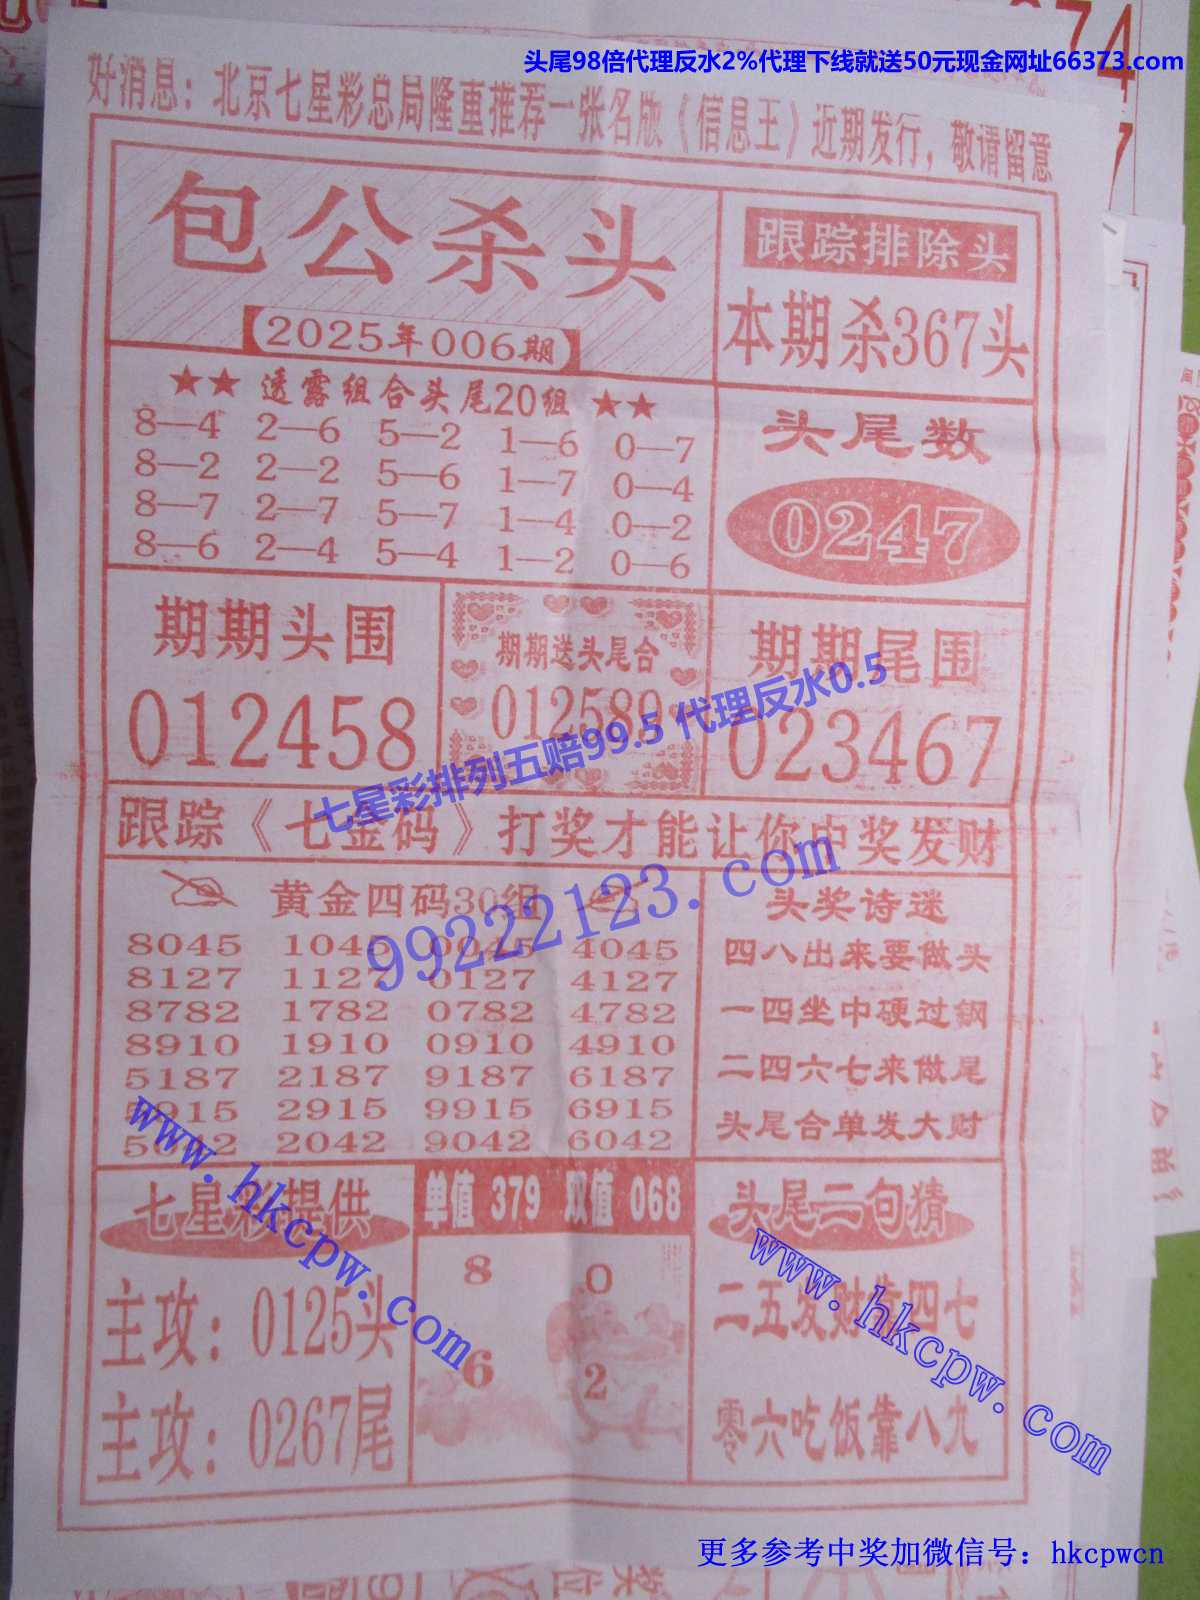 头尾98倍代理反水2%代理下线就送50元现金网址66373.com
好消息：北京七星彩总局隆重推荐一张名版《信息王》近期发行，敬请留意
包公杀头
【2025年006期】
跟踪排除头
本期杀367头
★★ 透露组合头尾20组 ★★
8—4 2—6 5—2 1—6 0—7
8—2 2—2 5—6 1—7 0—4
8—7 2—7 5—7 1—4 0—2
8—6 2—4 5—4 1—2 0—6
头尾数
0247
期期头围
012458
期期送头尾合
012589
期期尾围
023467
七星彩排列五赔99.5 代理反水0.5
跟踪《七金码》打奖才能让你中奖发财
99222123.com
黄金四码30组
8045 1045 0045 4045
8127 1127 0127 4127
8782 1782 0782 4782
8910 1910 0910 4910
5187 2187 9187 6187
5915 2915 9915 6915
5042 2042 9042 6042
头奖诗迷
四八出来要做头
一四坐中硬过钢
二四六七来做尾
头尾合单发大财
www.hkcpw.com
七星彩提供
主攻：0125头
主攻：0267尾
单值 379 双值 068
8 0
6 2
头尾二句猜
二五发财靠四七
零六吃饭靠八九
www.hkcpw.com
更多参考中奖加微信号：hkcpwcn